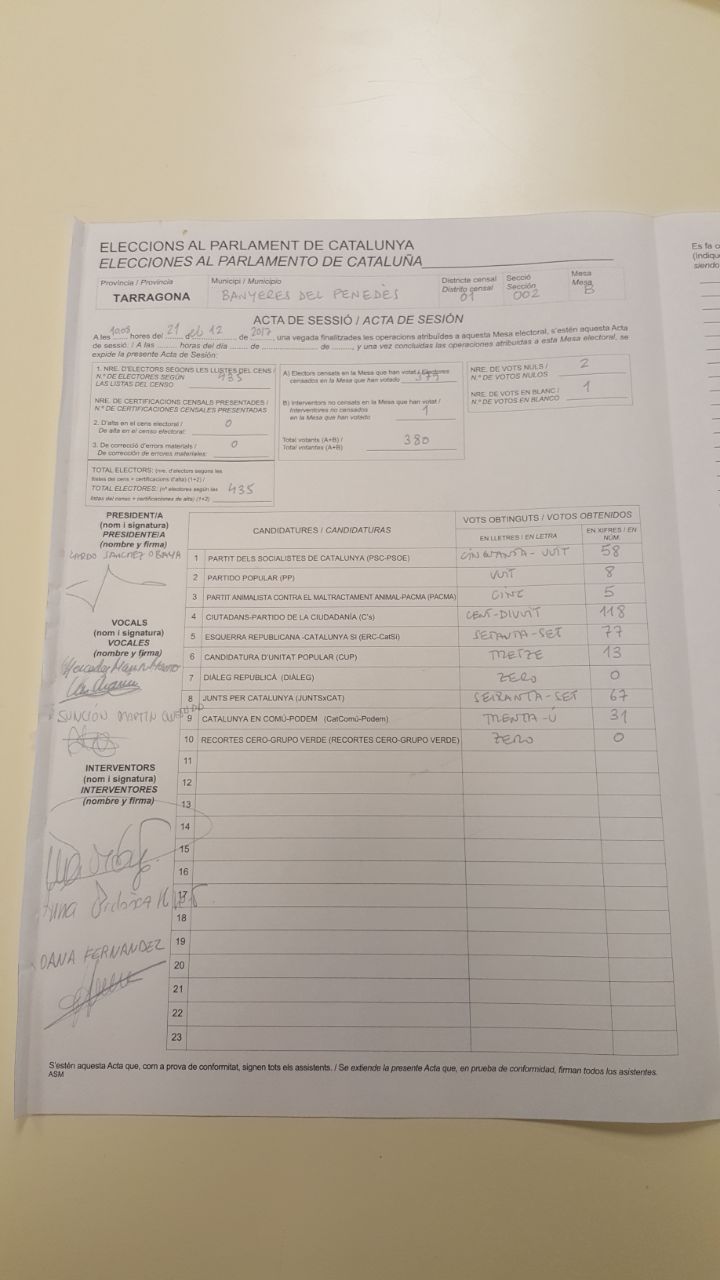 ELECCIONS AL PARLAMENT DE CATALUNYA
ELECCIONES AL PARLAMENTO DE CATALUÑA
Provincia / Provincia
TARRAGONA
Municipi / Municipio
BANYERES DEL PENEDÈS
Districte censal
Distrito censal
01
Secció
Sección
002
Mesa
Mesa
B
ACTA DE SESSIÓ / ACTA DE SESIÓN
A les hores del 21 de 12 de 2017, una vegada finalitzades les operacions atribuïdes a aquesta Mesa electoral, s'estén aquesta Acta
de sessió: / A las ........ horas del día ........ de .................. de ........, y una vez concluidas las operaciones atribuidas a esta Mesa electoral, se
expide la presente Acta de Sesión:
1. NRE. D'ELECTORS SEGONS LES LLISTES DEL CENS /
N.º DE ELECTORES SEGÚN 435
LAS LISTAS DEL CENSO
NRE. DE CERTIFICACIONS CENSALS PRESENTADES /
N.º DE CERTIFICACIONES CENSALES PRESENTADAS
2. D'alta en el cens electoral /
De alta en el censo electoral: 0
3. De correcció d'errors materials /
De corrección de errores materiales: 0
TOTAL ELECTORS: (nre. d'electors segons les
llistes del cens + certificacions d'alta) (1+2) /
TOTAL ELECTORES: (nº electores según las
listas del censo + certificaciones de alta) (1+2) 435
A) Electors censats en la Mesa que han votat / Electores
censados en la Mesa que han votado 379
B) Interventors no censats en la Mesa que han votat /
Interventores no censados
en la Mesa que han votado 1
Total votants (A+B) /
Total votantes (A+B) 380
NRE. DE VOTS NULS /
N.º DE VOTOS NULOS 2
NRE. DE VOTS EN BLANC /
N.º DE VOTOS EN BLANCO 1
PRESIDENT/A
(nom i signatura)
PRESIDENTE/A
(nombre y firma)
SANCHEZ OBAYA
VOCALS
(nom i signatura)
VOCALES
(nombre y firma)
MARTIN
INTERVENTORS
(nom i signatura)
INTERVENTORES
(nombre y firma)
FERNANDEZ
CANDIDATURES / CANDIDATURAS
VOTS OBTINGUTS / VOTOS OBTENIDOS
EN LLETRES / EN LETRA
EN XIFRES / EN NÚM.
1 PARTIT DELS SOCIALISTES DE CATALUNYA (PSC-PSOE) CINQUANTA-VUIT 58
2 PARTIDO POPULAR (PP) VUIT 8
3 PARTIT ANIMALISTA CONTRA EL MALTRACTAMENT ANIMAL-PACMA (PACMA) CINC 5
4 CIUTADANS-PARTIDO DE LA CIUDADANÍA (C's) CENT-DIVUIT 118
5 ESQUERRA REPUBLICANA -CATALUNYA SI (ERC-CatSI) SETANTA-SET 77
6 CANDIDATURA D'UNITAT POPULAR (CUP) TRETZE 13
7 DIÀLEG REPUBLICÀ (DIÀLEG) ZERO 0
8 JUNTS PER CATALUNYA (JUNTSxCAT) SEIXANTA-SET 67
9 CATALUNYA EN COMÚ-PODEM (CatComú-Podem) TRENTA-Ú 31
10 RECORTES CERO-GRUPO VERDE (RECORTES CERO-GRUPO VERDE) ZERO 0
11
12
13
14
15
16
17
18
19
20
21
22
23
S'estén aquesta Acta que, com a prova de conformitat, signen tots els assistents. / Se extiende la presente Acta que, en prueba de conformidad, firman todos los asistentes.
ASM
Es fa
(indiqu
siendo